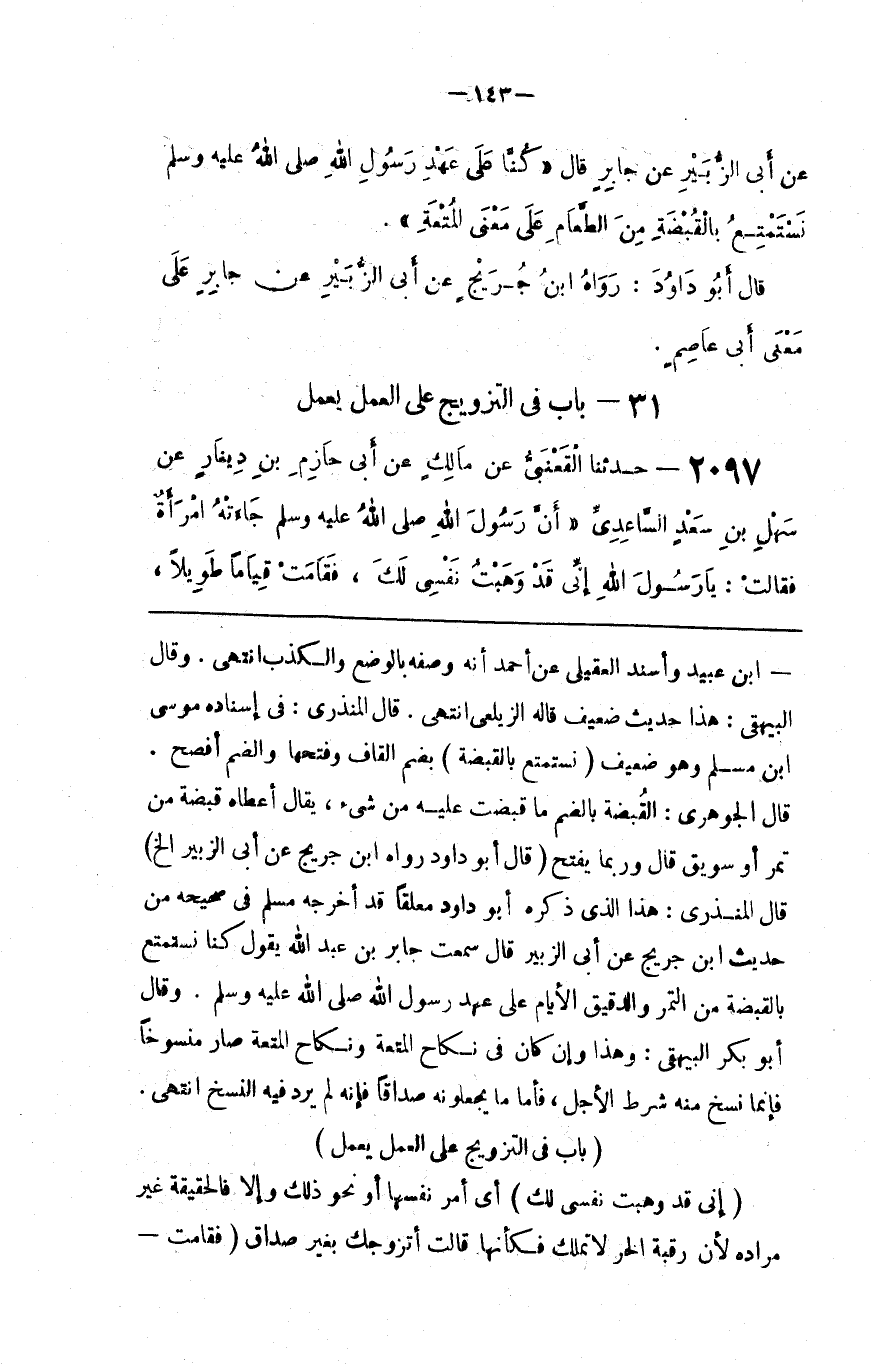 — ١٤٣ —
عن أَبى الزُّبَيْرِ عن جابِرٍ قال « كُنَّا عَلَى عَهْدِ رَسُولِ اللهِ صلى اللهُ عليه وسلم
نَسْتَمْتِعُ بالْقُبْضَةِ مِنَ الطَّعَامِ عَلَى مَعْنَى الْمُتْعَةِ » .
قال أَبُو دَاوُدَ : رَوَاهُ ابنُ جُرَيْجٍ عن أَبى الزُّبَيْرِ عن جابِرٍ عَلَى
مَعْنَى أَبى عاَصِمٍ .
٣١ — باب فى التزويج على العمل يعمل
٢٠٩٧ — حدثنا الْقَعْنَبىُّ عن مالِكٍ عن أَبى حَازِمِ بنِ دِينَارٍ عن
سَهْلِ بنِ سَعْدٍ السَّاعِدِىِّ « أَنَّ رَسُولَ اللهِ صلى اللهُ عليه وسلم جَاءَتْهُ امْرَأَةٌ
فقالتْ : يَارَسُولَ اللهِ إِنِّى قَدْ وَهَبْتُ نَفْسِى لَكَ ، فَقَامَتْ قِيَامًا طَوِيلاً ،
— ابن عبيد وأسند العقيلى عن أحمد أنه وصفه بالوضع والكذب انتهى . وقال
البيهقى : هذا حديث ضعيف قاله الزيلعى انتهى . قال المنذرى : فى إسناده موسى
ابن مسلم وهو ضعيف ( نستمتع بالقبضة ) بضم القاف وفتحها والضم أفصح .
قال الجوهرى : القُبضة بالضم ما قبضت عليه من شىء ، يقال أعطاه قبضة من
تمر أو سويق قال وربما يفتح ( قال أبو داود رواه ابن جريج عن أبى الزبير الخ )
قال المنذرى : هذا الذى ذكره أبو داود معلقاً قد أخرجه مسلم فى صحيحه من
حديث ابن جريج عن أبى الزبير قال سمعت جابر بن عبد الله يقول كنا نستمتع
بالقبضة من التمر والدقيق الأيام على عهد رسول الله صلى الله عليه وسلم . وقال
أبو بكر البيهقى : وهذا وإن كان فى نكاح المتعة ونكاح المتعة صار منسوخاً
فإنما نسخ منه شرط الأجل ، فأما ما يجعلونه صداقاً فإنه لم يرد فيه النسخ انتهى .
( باب فى التزويج على العمل يعمل )
( إنى قد وهبت نفسى لك ) أى أمر نفسها أو نحو ذلك وإلا فالحقيقة غير
مراده لأن رقبة الحر لاتملك فكأنها قالت أتزوجك بغير صداق ( فقامت —